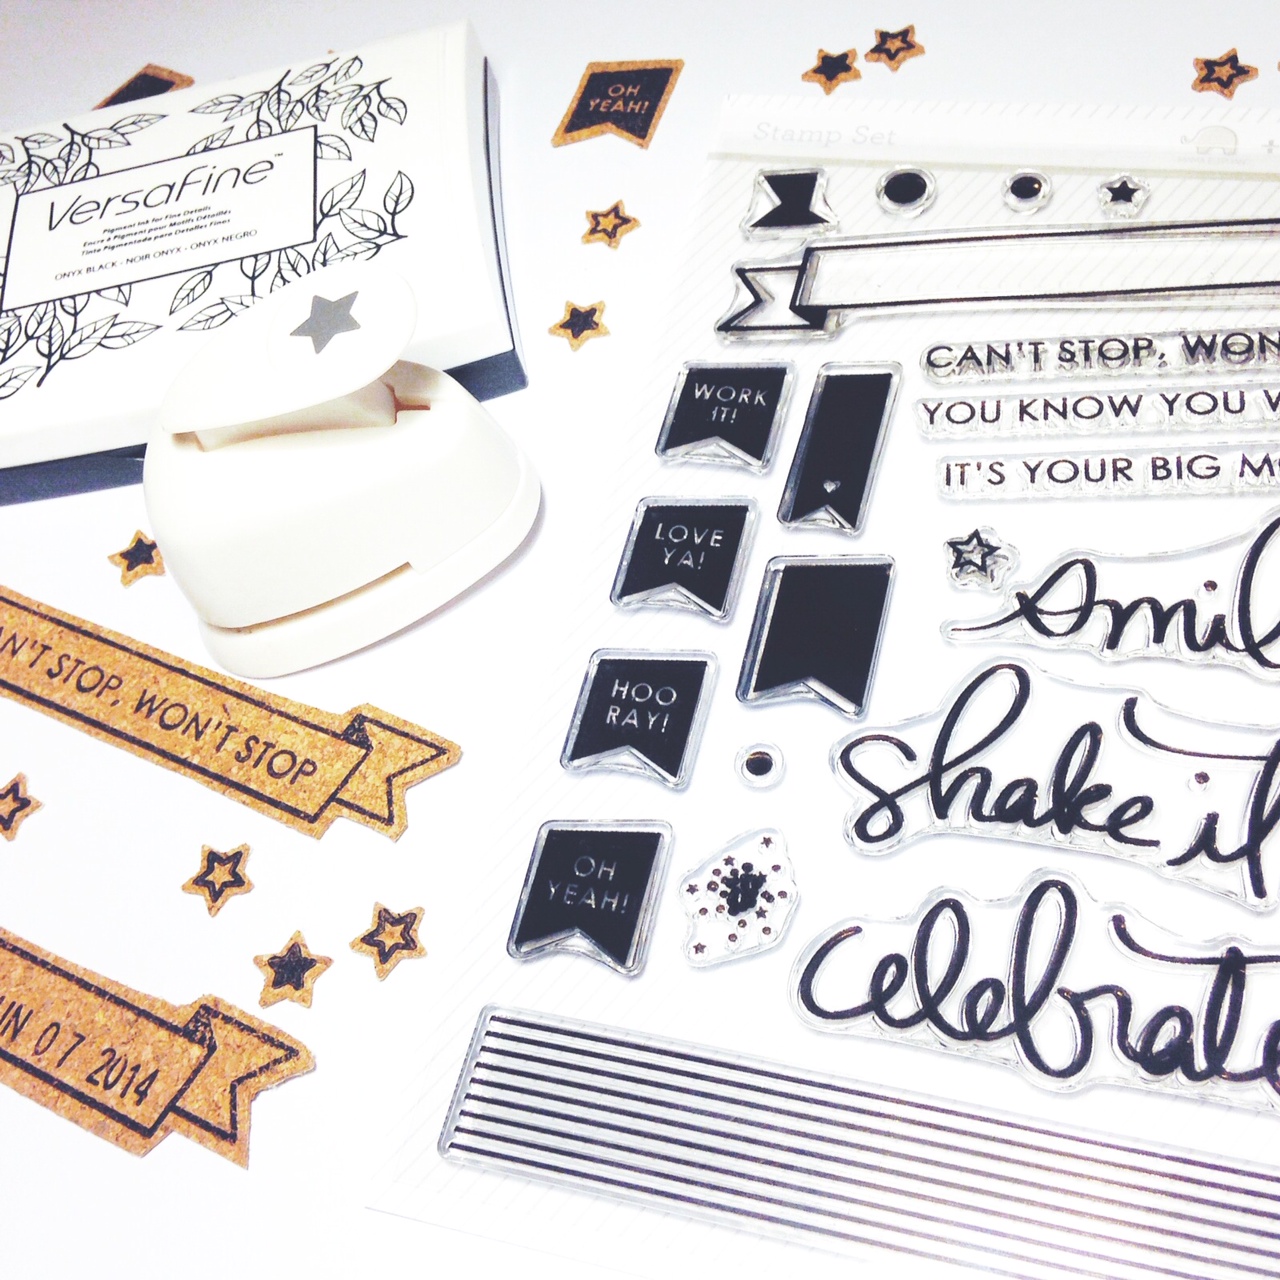 VersaFine™
Pigment Ink for Fine Details
Encre à Pigment pour Motifs Détaillés
Tinta Pigmentada para Detalles Finos
ONYX BLACK - NOIR ONYX - ONYX NEGRO
OH
YEAH!
Stamp Set
CAN'T STOP, WON
YOU KNOW YOU
IT'S YOUR BIG
WORK
IT!
LOVE
YA!
HOO
RAY!
OH
YEAH!
smil
shake it
celebrate
AN'T STOP, WON'T STOP
UN 07 2014